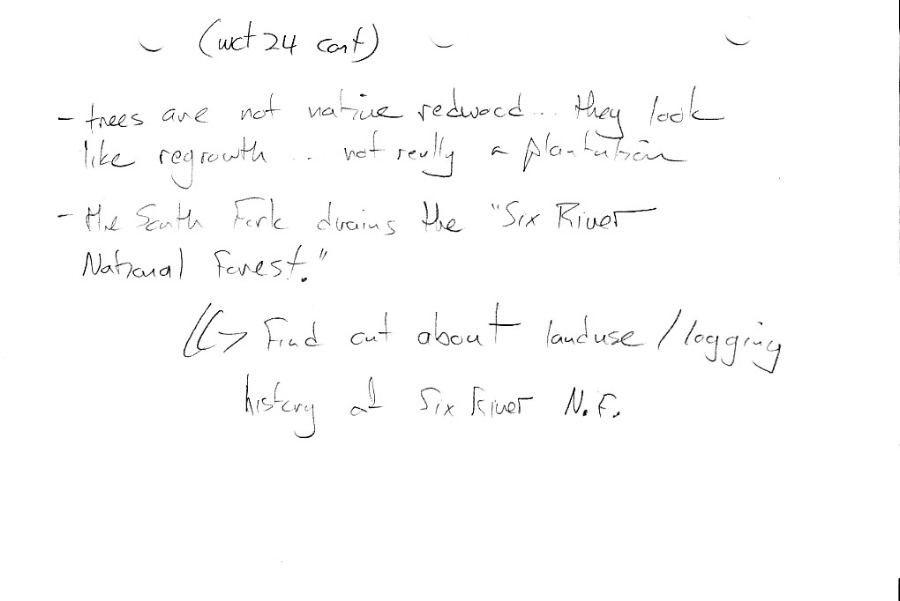 (wct 24 cont)
- trees are not native redwood... they look
like regrowth ... not really a plantation
- the South Fork drains the "Six River
National Forest."
Find out about landuse/logging
history at Six River N.F.